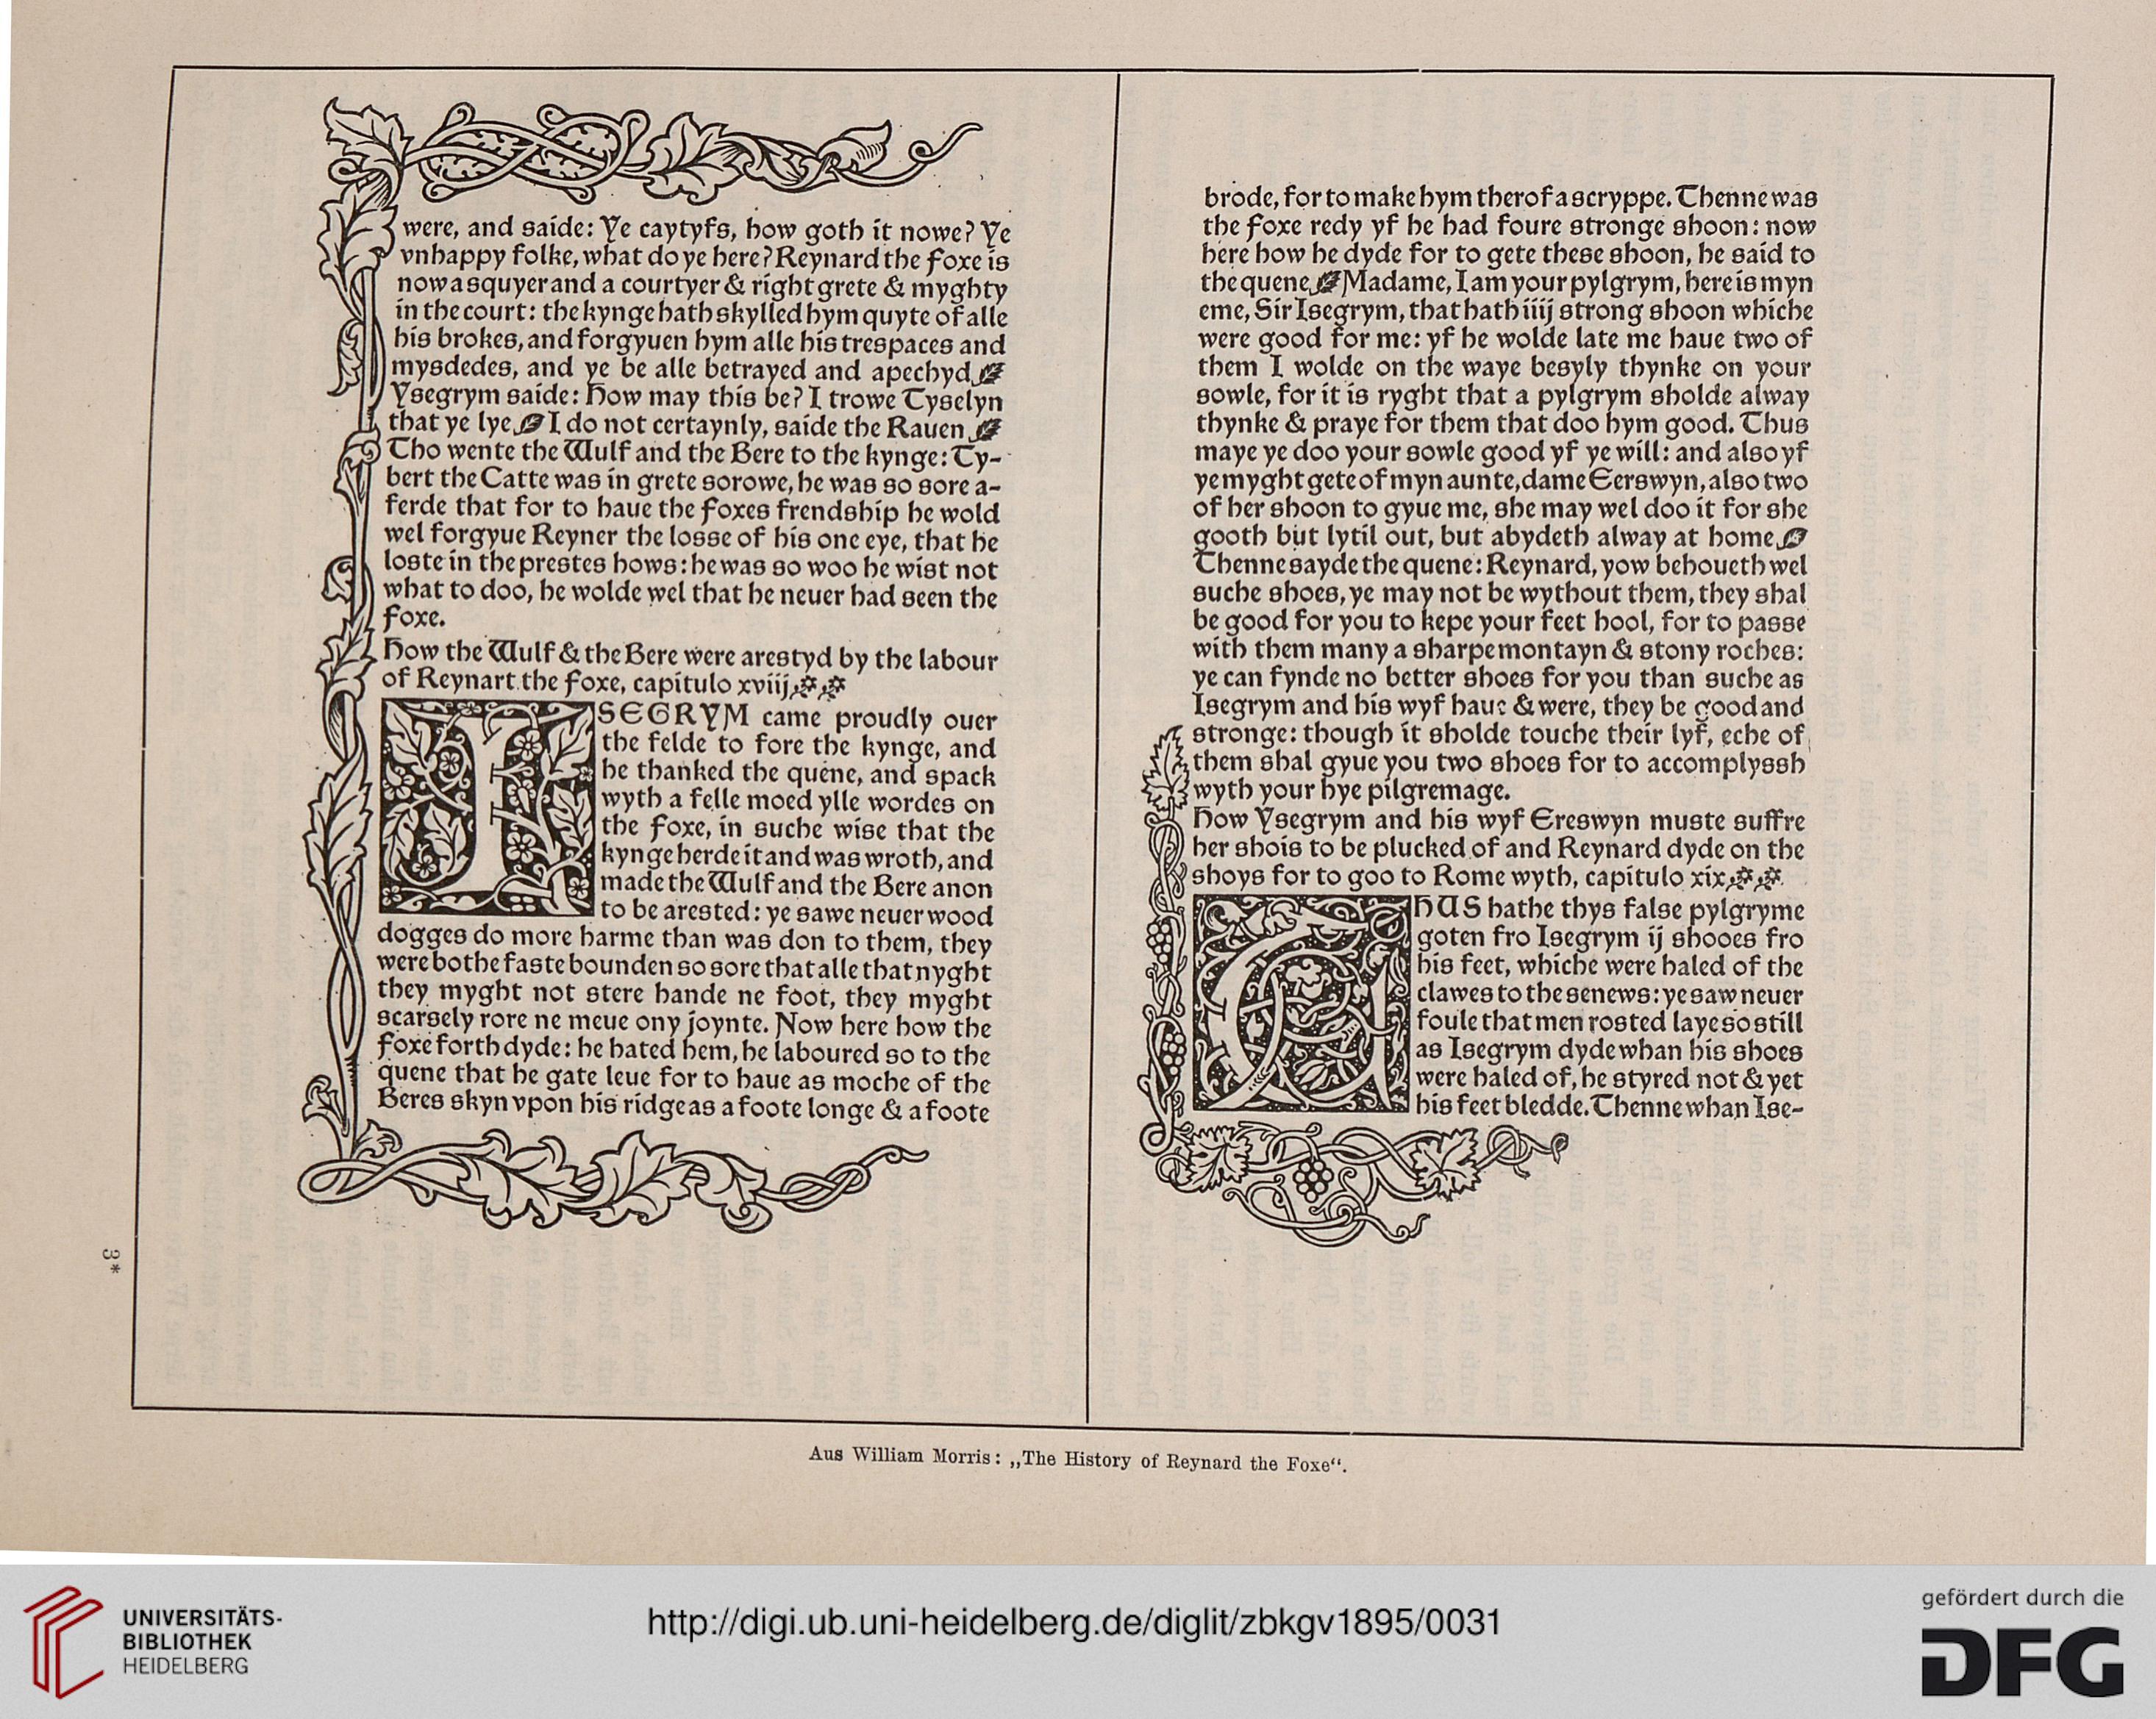 were, and saide: Ye caytyfs, how goth it nowe? Ye
vnhappy folke, what do ye here? Reynard the foxe is
now a squyer and a courtyer & right grete & myghty
in the court: the kynge hath skylled hym quyte of alle
his brokes, and forgyuen hym alle his trespaces and
mysdedes, and ye be alle betrayed and apechyd
Ysegrym saide: How may this be? I trowe Tyselyn
that ye lye I do not certaynly, saide the Rauen
Tho wente the Wulf and the Bere to the kynge: Ty-
bert the Catte was in grete sorowe, he was so sore a-
ferde that for to haue the foxes frendship he wold
wel forgyue Reyner the losse of his one eye, that he
loste in the prestes hows: he was so woo he wist not
what to doo, he wolde wel that he neuer had seen the
foxe.
How the Wulf & the Bere were arestyd by the labour
of Reynart the foxe, capitulo xviij
ISEGRYM came proudly ouer
the felde to fore the kynge, and
he thanked the quene, and spack
wyth a felle moed ylle wordes on
the foxe, in suche wise that the
kynge herde it and was wroth, and
made the Wulf and the Bere anon
to be arested: ye sawe neuer wood
dogges do more harme than was don to them, they
were bothe faste bounden so sore that alle that nyght
they myght not stere hande ne foot, they myght
scarsely rore ne meue ony joynte. Now here how the
foxe forth dyde: he hated hem, he laboured so to the
quene that he gate leue for to haue as moche of the
Beres skyn vpon his ridge as a foote longe & a foote
brode, for to make hym therof a scryppe. Thenne was
the foxe redy yf he had foure stronge shoon: now
here how he dyde for to gete these shoon, he said to
the quene Madame, I am your pylgrym, here is myn
eme, Sir Isegrym, that hath iiij strong shoon whiche
were good for me: yf he wolde late me haue two of
them I wolde on the waye besyly thynke on your
sowle, for it is ryght that a pylgrym sholde alway
thynke & praye for them that doo hym good. Thus
maye ye doo your sowle good yf ye will: and also yf
ye myght gete of myn aunte, dame Eerswyn, also two
of her shoon to gyue me, she may wel doo it for she
gooth but lytil out, but abydeth alway at home
Thenne sayde the quene: Reynard, yow behoueth wel
suche shoes, ye may not be wythout them, they shal
be good for you to kepe your feet hool, for to passe
with them many a sharpe montayn & stony roches:
ye can fynde no better shoes for you than suche as
Isegrym and his wyf haue & were, they be good and
stronge: though it sholde touche their lyf, eche of
them shal gyue you two shoes for to accomplyssh
wyth your hye pilgremage.
How Ysegrym and his wyf Ereswyn muste suffre
her shois to be plucked of and Reynard dyde on the
shoys for to goo to Rome wyth, capitulo xix
THUS hathe thys false pylgryme
goten fro Isegrym ij shooes fro
his feet, whiche were haled of the
clawes to the senews: ye saw neuer
foule that men rosted laye so still
as Isegrym dyde whan his shoes
were haled of, he styred not & yet
his feet bledde. Thenne whan Ise-
3*
Aus William Morris: „The History of Reynard the Foxe“.
UNIVERSITÄTS-
BIBLIOTHEK
HEIDELBERG
http://digi.ub.uni-heidelberg.de/diglit/zbkgv1895/0031
gefördert durch die
DFG